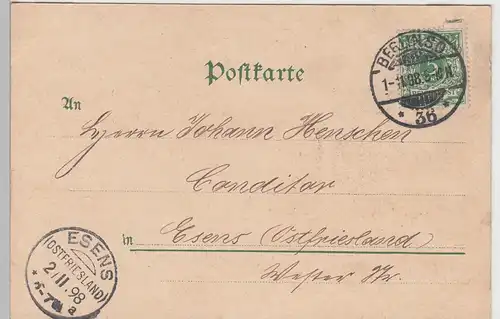 BERLIN S.O.
1-11 98 8-9N
* 36 *
Postkarte
An
Herrn Johann Henschen
Conditor
in Esens (Ostfriesland)
Wester Str.
ESENS
(OSTFRIESLAND)
2/11.98
* 6-7N a